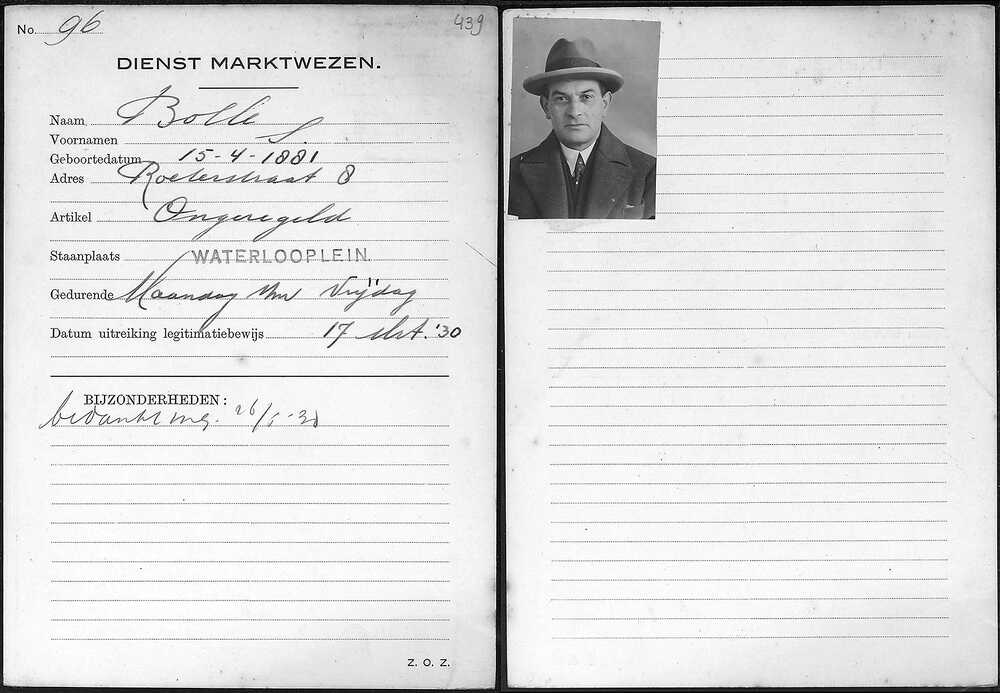 No. 96
439
DIENST MARKTWEZEN.
Naam Bolle
Voornamen S.
Geboortedatum 15-4-1881
Adres Roeterstraat 8
Artikel Ongeregeld
Staanplaats WATERLOOPLEIN.
Gedurende Maandag t/m Vrijdag
Datum uitreiking legitimatiebewijs 17 Mrt. '30
BIJZONDERHEDEN:
bedankt 26/
Z. O. Z.